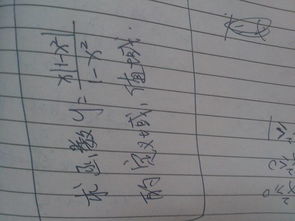 求函数 y = x|1-x²| / 1-x²
的定义域、值域.